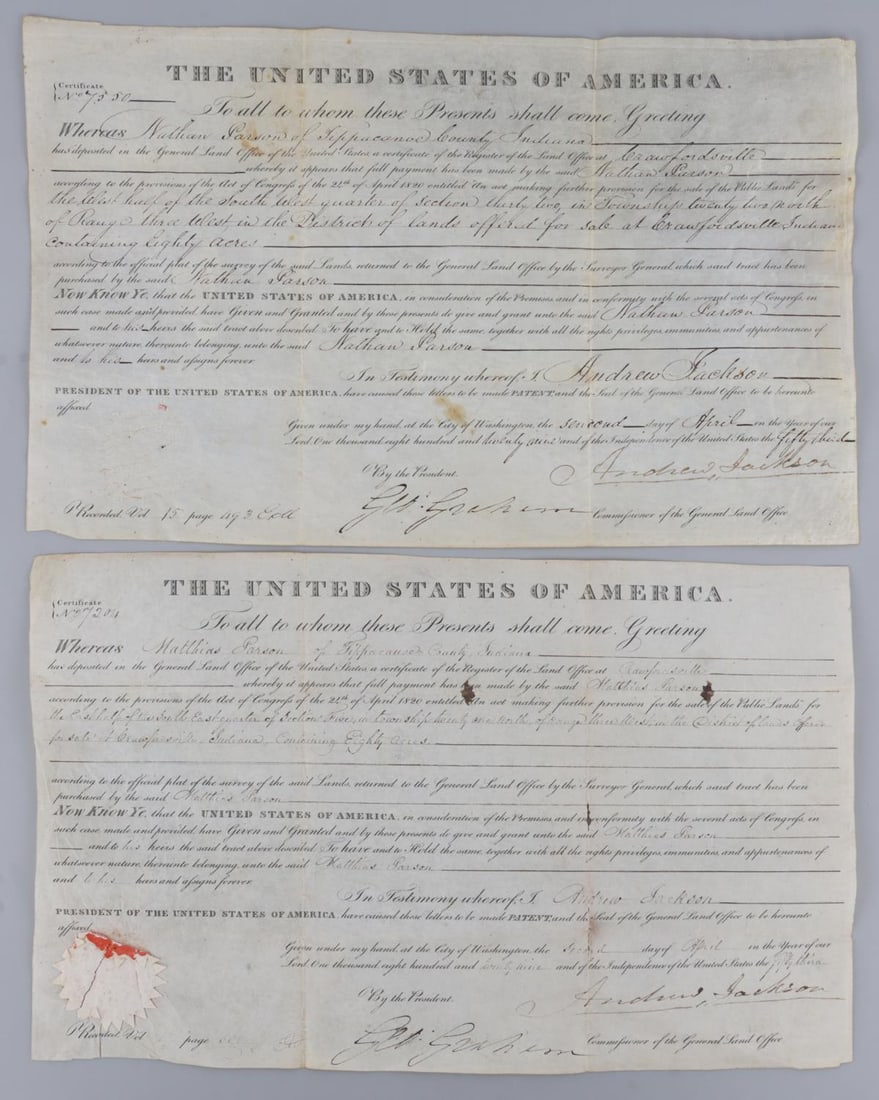 THE UNITED STATES OF AMERICA.
Certificate
No. 7550
To all to whom these Presents shall come, Greeting
Whereas Nathan Parson of Tippacanoe County Indiana
has deposited in the General Land Office of the United States a certificate of the Register of the Land Office at Crawfordsville
whereby it appears that full payment has been made by the said Nathan Parson
according to the provisions of the Act of Congress of the 24th of April 1820 entitled An act making further provision for the sale of the Public Lands for
the West half of the South West quarter of section thirty two, in Township twenty two North
of Range three West, in the District of lands offered for sale at Crawfordsville Indiana
containing Eighty acres
according to the official plat of the survey of the said Lands, returned to the General Land Office by the Surveyor General, which said tract has been
purchased by the said Nathan Parson
Now Know Ye, that the UNITED STATES OF AMERICA, in consideration of the Premises and in conformity with the several acts of Congress, in
such case made and provided, have Given and Granted and by these presents do give and grant unto the said Nathan Parson
and to his heirs the said tract above described To have and to Hold the same, together with all the rights privileges immunities and appurtenances of
whatsoever nature, thereunto belonging, unto the said Nathan Parson
and to his heirs and assigns forever
In Testimony whereof, I Andrew Jackson
PRESIDENT OF THE UNITED STATES OF AMERICA, have caused these letters to be made PATENT, and the Seal of the General Land Office to be hereunto
affixed
Given under my hand, at the City of Washington, the second day of April in the Year of our
Lord One thousand eight hundred and twenty nine and of the Independence of the United States the fifty third
By the President. Andrew Jackson
Recorded, Vol 15 page 493 GW. Graham Commissioner of the General Land Office
THE UNITED STATES OF AMERICA.
Certificate
No. 7204
To all to whom these Presents shall come, Greeting
Whereas Matthias Parson of Tippacanoe County, Indiana
has deposited in the General Land Office of the United States, a certificate of the Register of the Land Office at Crawfordsville
whereby it appears that full payment has been made by the said Matthias Parson
according to the provisions of the Act of Congress of the 24th of April 1820 entitled An act making further provision for the sale of the Public Lands for
the East half of the South East quarter of Section in Township twenty one north, of range three West, in the District of lands Offered
for sale at Crawfordsville, Indiana, Containing Eighty Acres
according to the official plat of the survey of the said Lands, returned to the General Land Office by the Surveyor General, which said tract has been
purchased by the said Matthias Parson
Now Know Ye, that the UNITED STATES OF AMERICA, in consideration of the Premises and in conformity with the several acts of Congress, in
such case made and provided, have Given and Granted and by these presents do give and grant unto the said Matthias Parson
and to his heirs the said tract above described To have and to Hold the same, together with all the rights privileges, immunities, and appurtenances of
whatsoever nature, thereunto belonging, unto the said Matthias Parson
and to his heirs and assigns forever
In Testimony whereof, I Andrew Jackson
PRESIDENT OF THE UNITED STATES OF AMERICA, have caused these letters to be made PATENT, and the Seal of the General Land Office to be hereunto
affixed
Given under my hand, at the City of Washington, the second day of April in the Year of our
Lord One thousand eight hundred and twenty nine and of the Independence of the United States the fifty third
By the President. Andrew Jackson
Recorded, Vol page GW. Graham Commissioner of the General Land Office